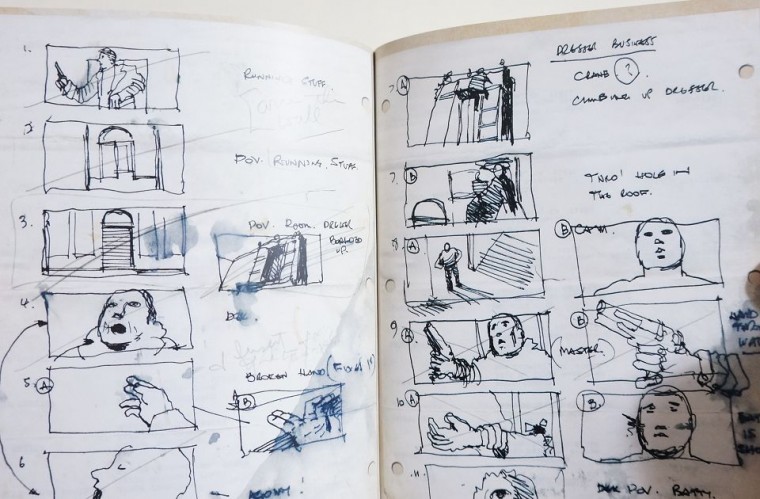 1.
RUNNING STUFF
2.
POV. RUNNING. STUFF.
3.
POV. ROOM. DRESSER
UP.
4.
DEK.
BROKEN HAND
5. A
B
6
AGONY!
DRESSER BUSINESS
CRANE ?.
CLIMBING UP DRESSER.
7. A
7. B
THRO' HOLE IN
THE ROOF.
8. A
B CAM.
9. A
(MASTER.)
B
HAND
THRO
10 A
B
IS
11.
DEK POV. BATTY